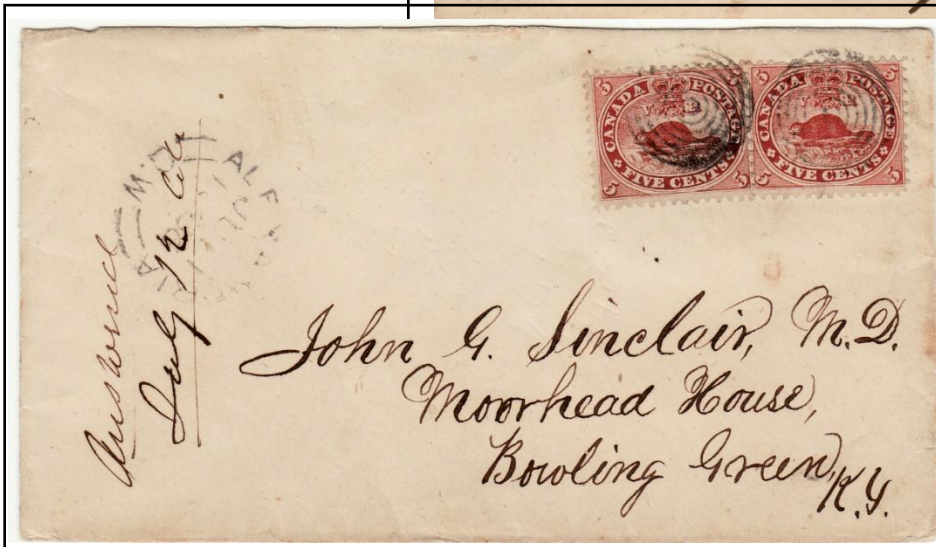 5 5
CANADA POSTAGE
V R
FIVE CENTS
5 5
5 5
CANADA POSTAGE
V R
FIVE CENTS
5 5
Answered
July 12
JUL
John G. Sinclair, M.D.
Moorhead House,
Bowling Green,
K.Y.